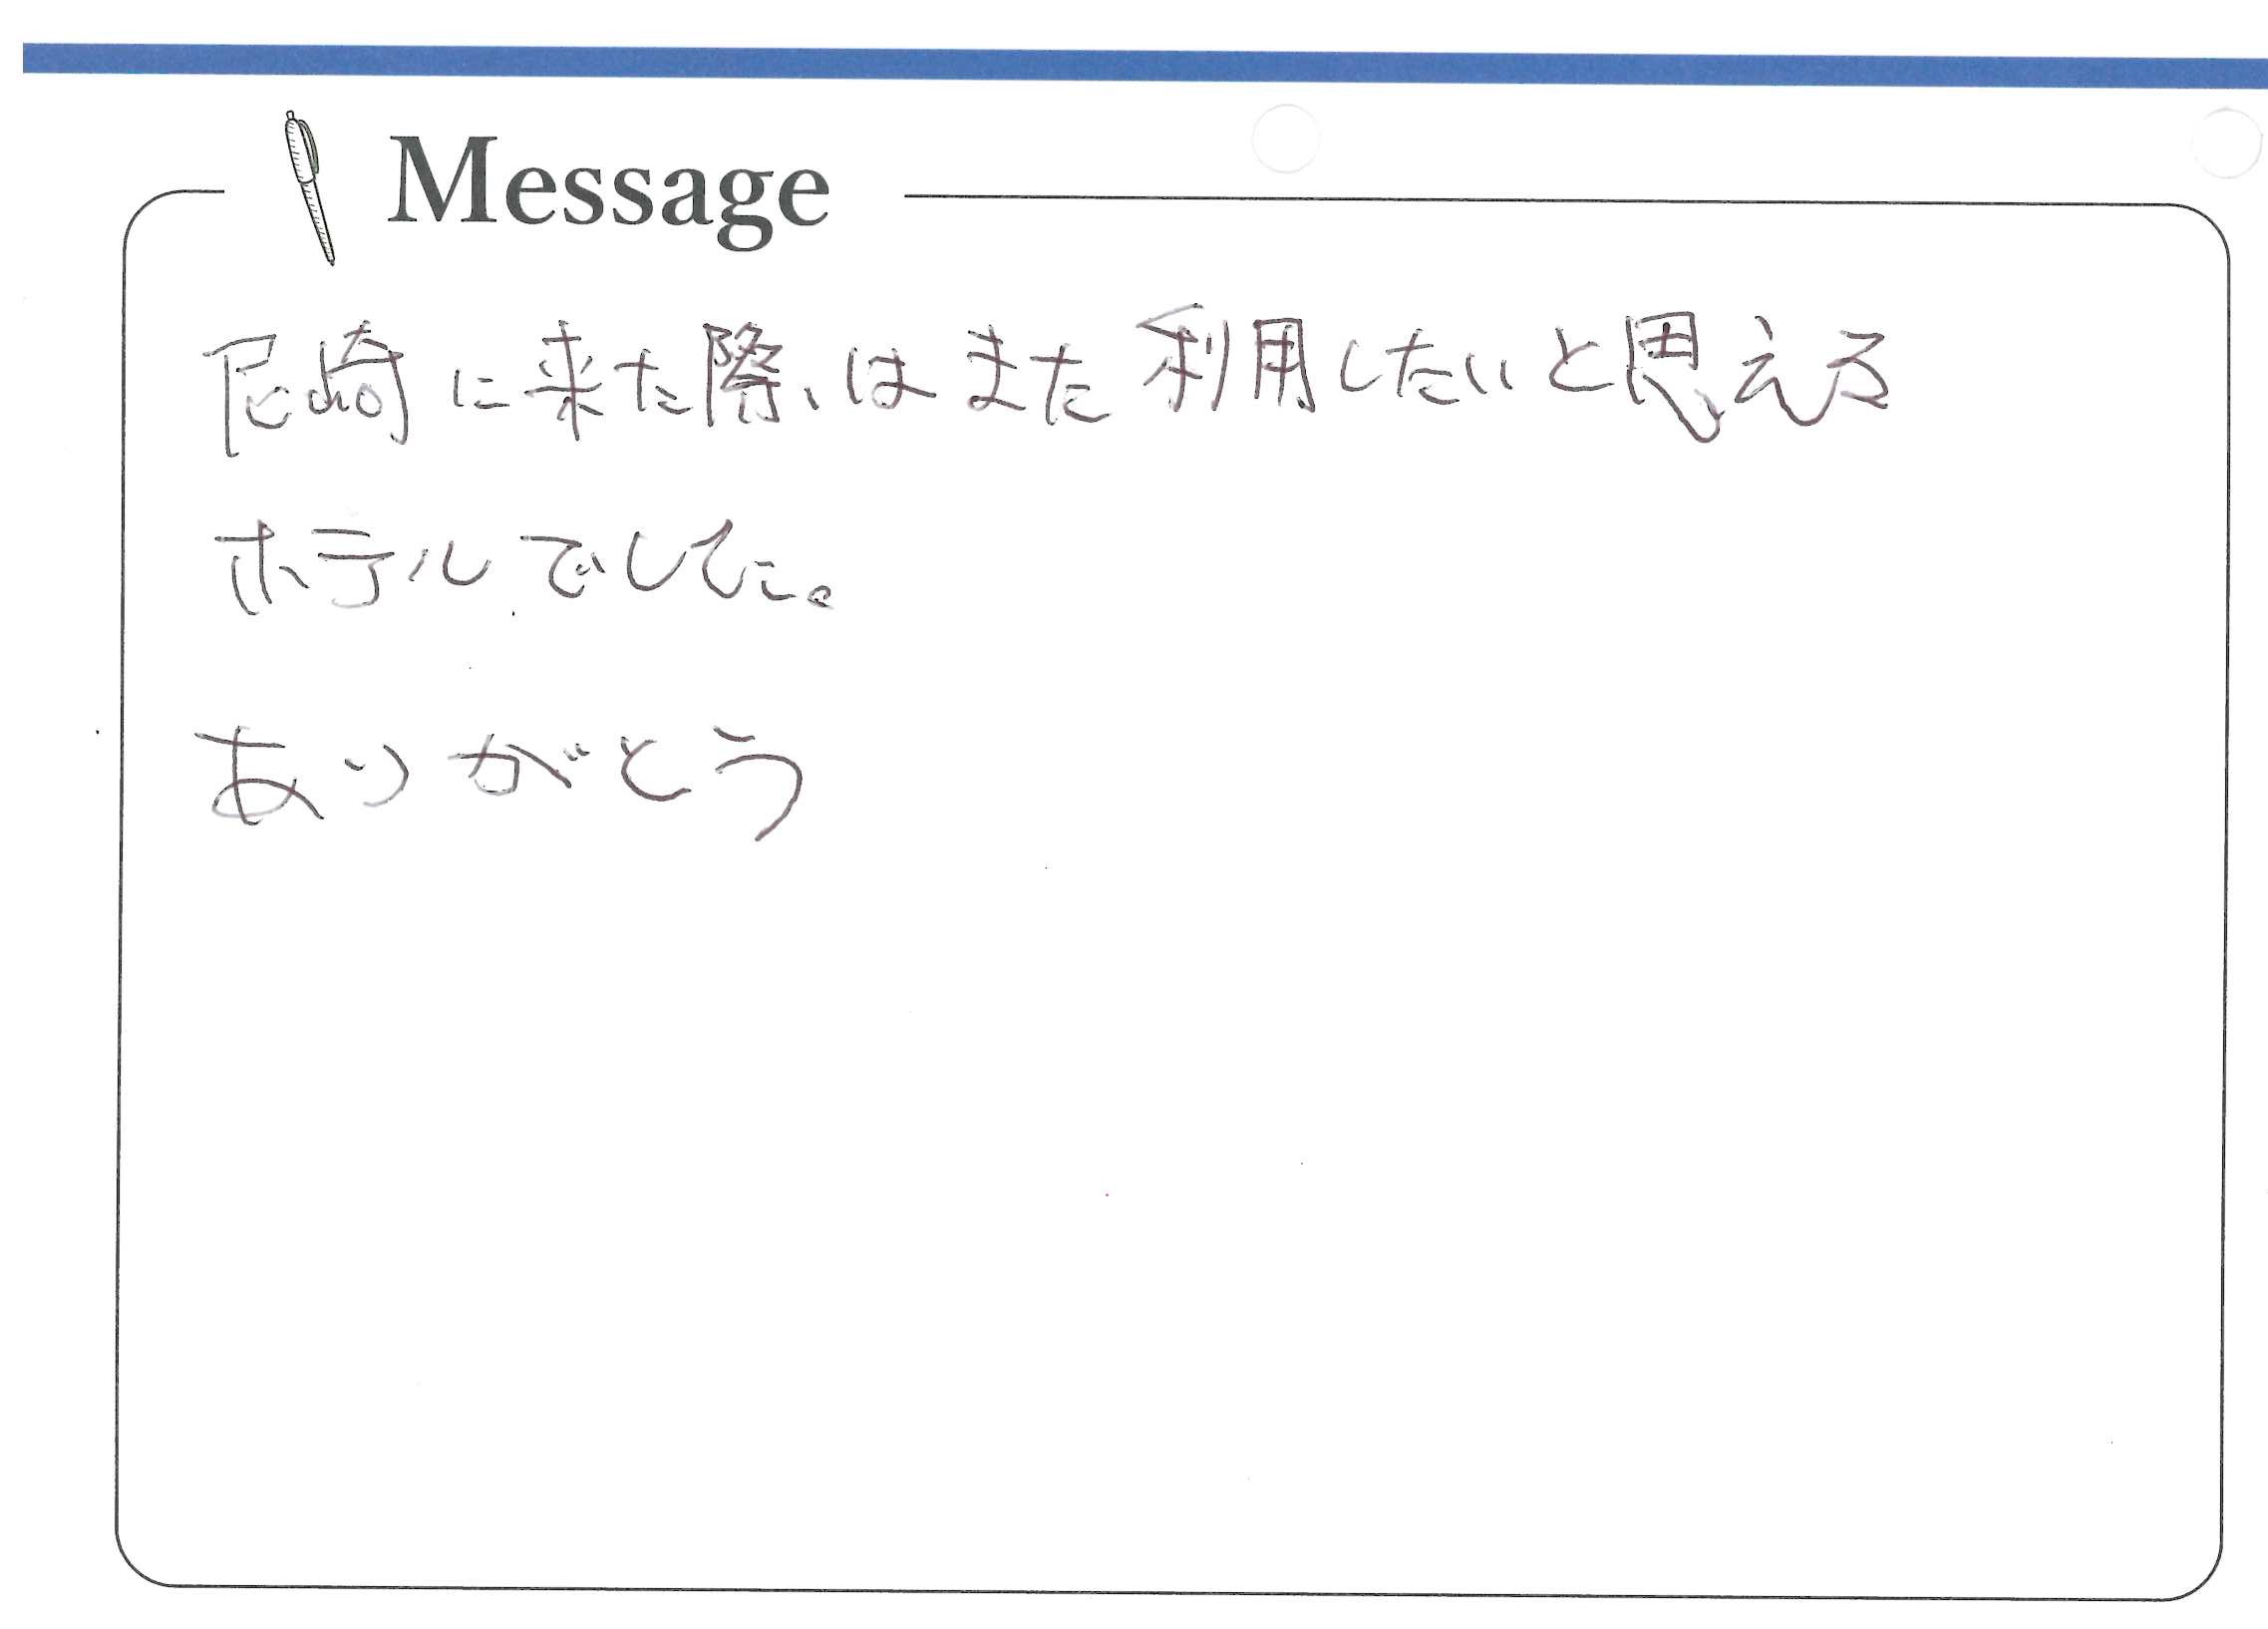 Message
尼崎に来た際はまた利用したいと思える
ホテルでした。
ありがとう